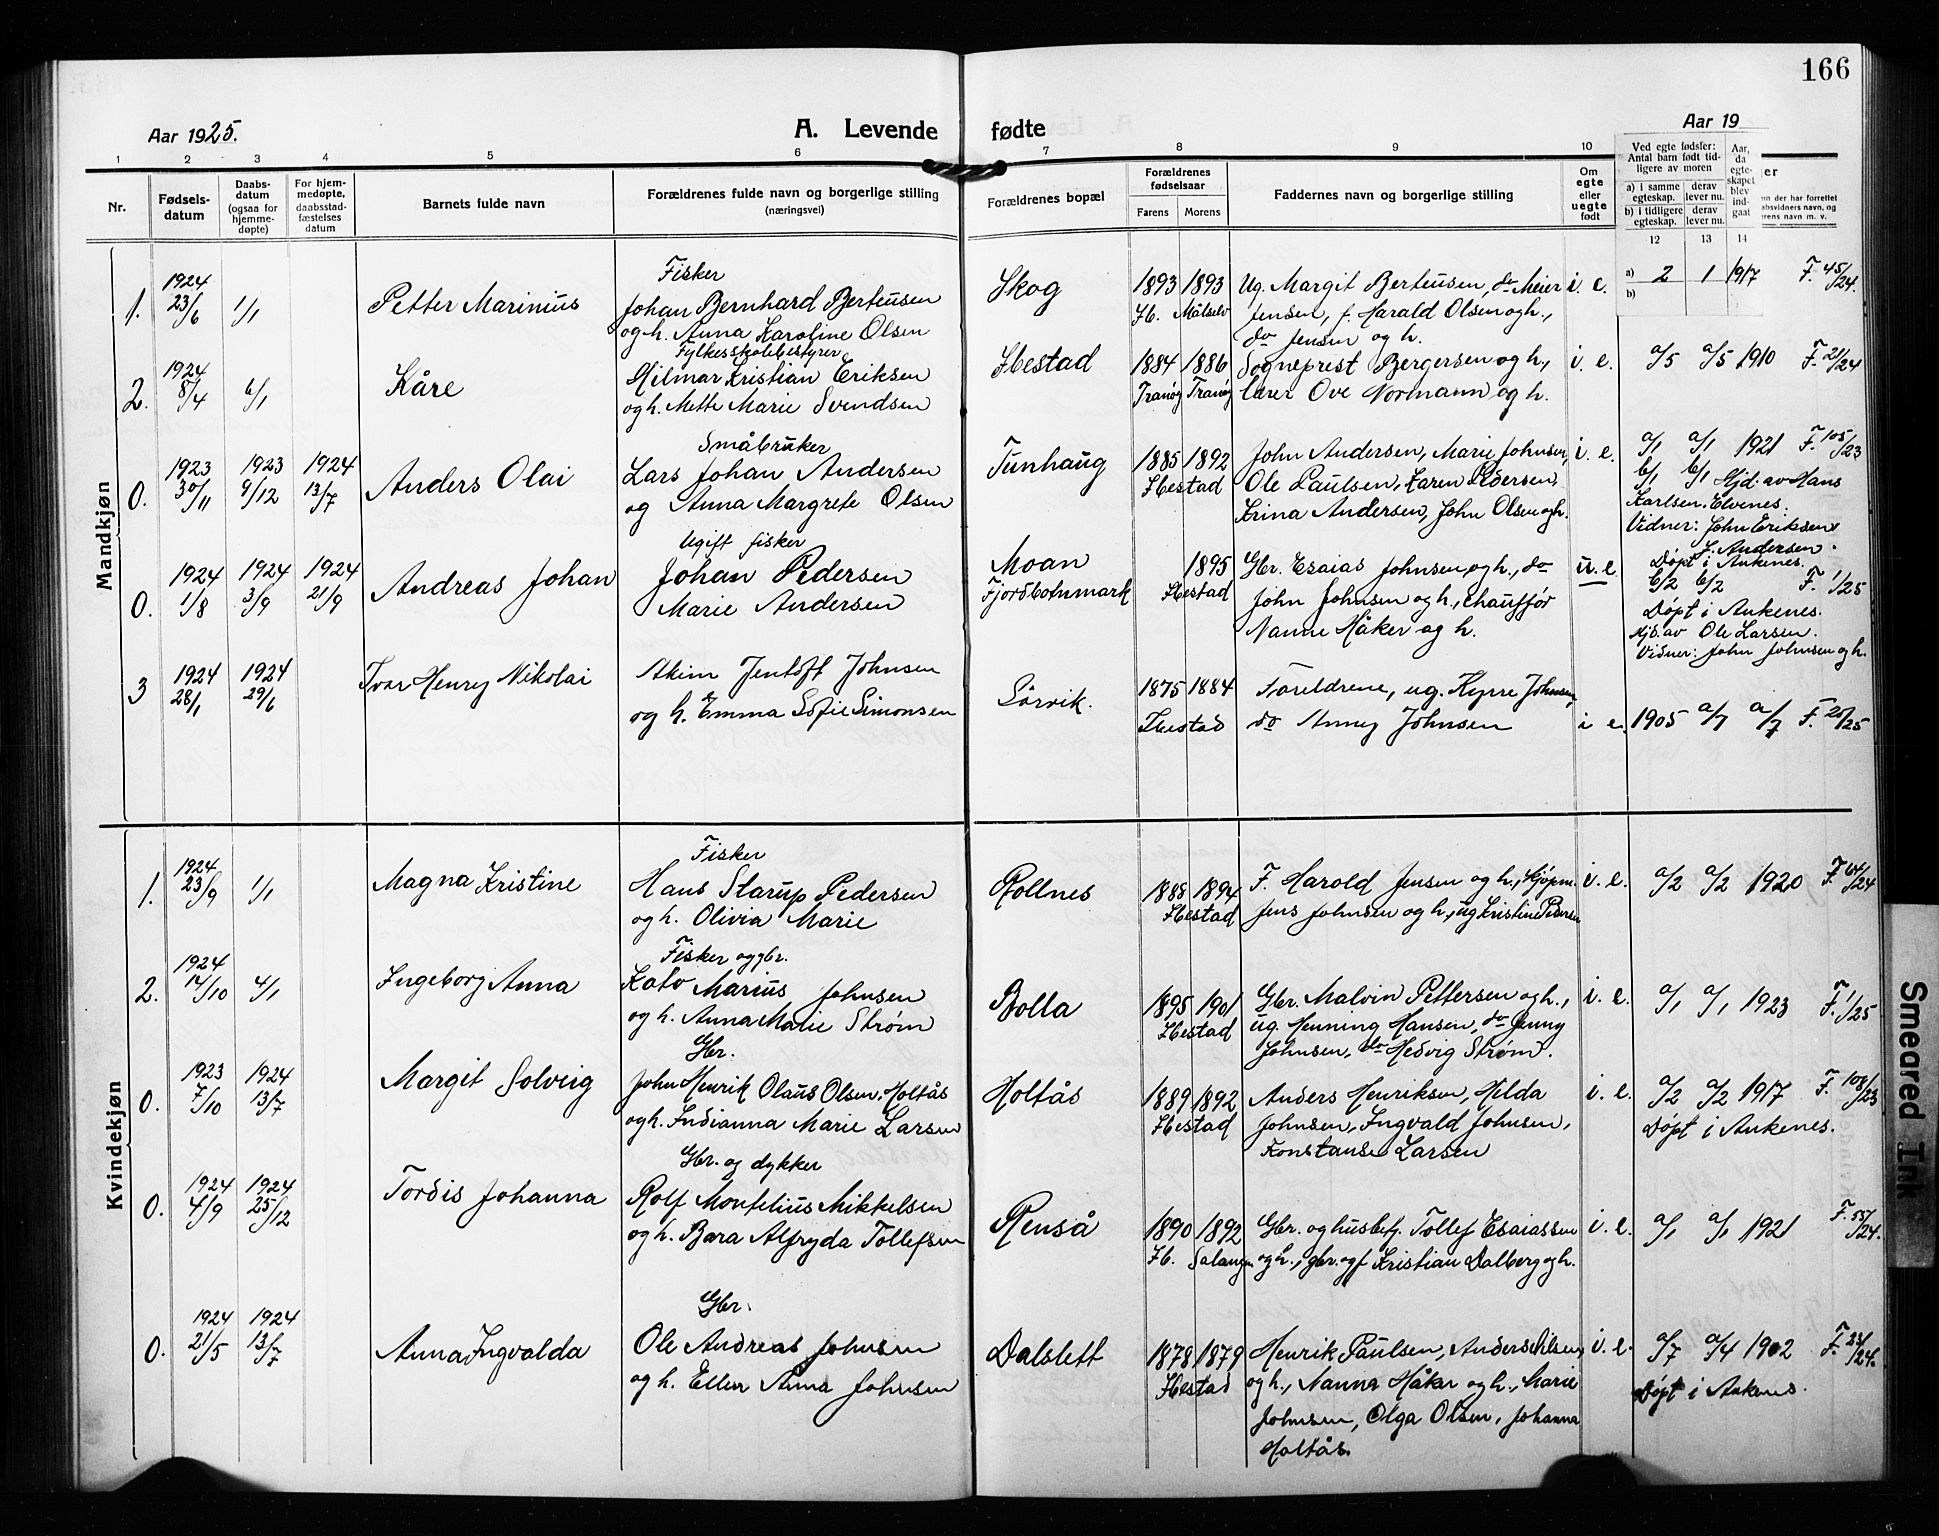 166
Aar 1925.
A. Levende fødte
Aar 19
1 2 3 4 5 6 7 8 9 10
Nr.
Fødsels-
datum
Daabs-
datum
(ogsaa for
hjemme-
døpte)
For hjem-
medøpte,
daabsstad-
fæstelses
datum
Barnets fulde navn
Forældrenes fulde navn og borgerlige stilling
(næringsvei)
Forældrenes bopæl
Forældrenes
fødselsaar
Farens Morens
Faddernes navn og borgerlige stilling
Om
egte
eller
uegte
født
Ved egte fødsler:
Antal barn født tid-
ligere av moren
a) i samme
egteskap.
derav
lever nu.
b) i tidligere
egteskap.
derav
lever nu.
Aar,
da
egte-
skapet
blev
ind-
gaat
12 13 14
Mandkjøn
1. 1924 23/6 1/1 Petter Marinius
Fisker
Johan Bernhard Berteusen
og h. Anna Karoline Olsen
Skog
1893 1893
Ib. Målselv
Ug. Margit Berteusen, do Meier
Jensen, f. Harald Olsen og h.,
do Jensen og h.
i. e.
a) 2 1 1917 F. 45/24.
b)
2. 1924 8/4 6/1 Kåre
Fylkesskolebestyrer
Hilmar Kristian Eriksen
og h. Mette Marie Svendsen
Ibestad
1884 1886
Tranøy Tranøy
Sogneprest Bergersen og h.,
lærer Ove Normann og h.
i. e.
a/5 a/5 1910 F. 21/24
0. 1923 30/11 1923 9/12 1924 13/7 Anders Olai
Småbruker
Lars Johan Andersen
og Anna Margrete Olsen
Tunhaug
1885 1892
Ibestad
John Andersen, Marie Johnsen,
Ole Paulsen, Karen Pedersen,
Krina Andersen, John Olsen og h.
i. e.
a/1 a/1 1921 F. 105/23
b/1 b/1 Hjd. av Hans
Karlsen, Elvenes.
Vidner: John Eriksen,
J. Andersen.
Døpt i Ankenes.
0. 1924 1/8 1924 3/9 1924 21/9 Andreas Johan
Ugift fisker
Johan Pedersen
Marie Andersen
Moan
Fjordbotnmark
1895
Ibestad
Gbr. Esaias Johnsen og h., do
John Johnsen og h., chauffør
Nanne Håker og h.
u. e.
b/2 b/2 F. 1/25
Døpt i Ankenes.
Hjd. av Ole Larsen.
Vidner: John Johnsen og h.
3 1924 28/1 1924 29/6 Ivar Henry Nikolai
Akim Jentoft Johnsen
og h. Emma Sofie Simonsen
Sørvik.
1875 1884
Ibestad
Foreldrene, ug. Kyrre Johnsen,
do Anny Johnsen
i e.
1905 a/7 a/7 F. 20/25
Kvindekjøn
1. 1924 23/9 1/1 Magna Kristine
Fisker
Hans Starup Pedersen
og h. Olivia Marie
Rollnes
1888 1894
Ibestad
F. Harold Jensen og h., kjøpm.
Jens Johnsen og h., ug Kristine Pedersen
i. e.
a/2 a/2 1920 F. 64/24
2. 1924 14/10 4/1 Ingeborg Anna
Fisker og gbr.
Kato Marius Johnsen
og h. Anna Marie Strøm
Bolla
1895 1901
Ibestad
Gbr. Malvin Pettersen og h.,
ug. Henning Hansen, do Jenny
Johnsen, do Hedvig Strøm.
i. e.
a/1 a/1 1923 F. 1/25
0. 1923 7/10 1924 13/7 Margit Solveig
Gbr.
John Henrik Olaus Olsen, Holtås
og h. Indianna Marie Larsen
Holtås
1889 1892
Ibestad
Anders Henriksen, Hilda
Johnsen, Ingvald Johnsen,
Konstanse Larsen
i. e.
a/2 a/2 1917 F. 108/23
Døpt i Ankenes.
0. 1924 4/9 1924 25/12 Tordis Johanna
Gbr. og dykker
Rolf Montelius Mikkelsen
og h. Bara Alfryda Tollefsen
Renså
1890 1892
Ib. Salangen
Gbr. og husbefj. Tollef Esaiassen
og h., gbr. og f Kristian Dalberg og h.
i. e.
a/1 a/1 1921 F. 55/24.
0. 1924 21/5 1924 13/7 Anna Ingvalda
Gbr.
Ole Andreas Johnsen
og h. Ellen Anna Johnsen
Dalslett
1878 1879
Ibestad
Henrik Paulsen, Anders Olsen,
og h., Nanna Håker og h., Marie
Johnsen, Olga Olsen, Johanna
Holtås.
i. e.
a/7 a/4 1902 F. 23/24.
Døpt i Ankenes.
Smeared Ink